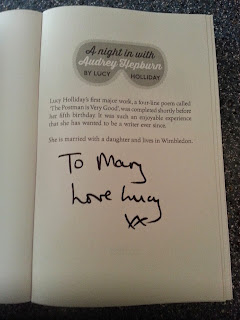 A night in with
Audrey Hepburn
BY LUCY HOLLIDAY
Lucy Holliday's first major work, a four-line poem called
'The Postman is Very Good', was completed shortly before
her fifth birthday. It was such an enjoyable experience
that she has wanted to be a writer ever since.
She is married with a daughter and lives in Wimbledon.
To Mary
Love Lucy
xx